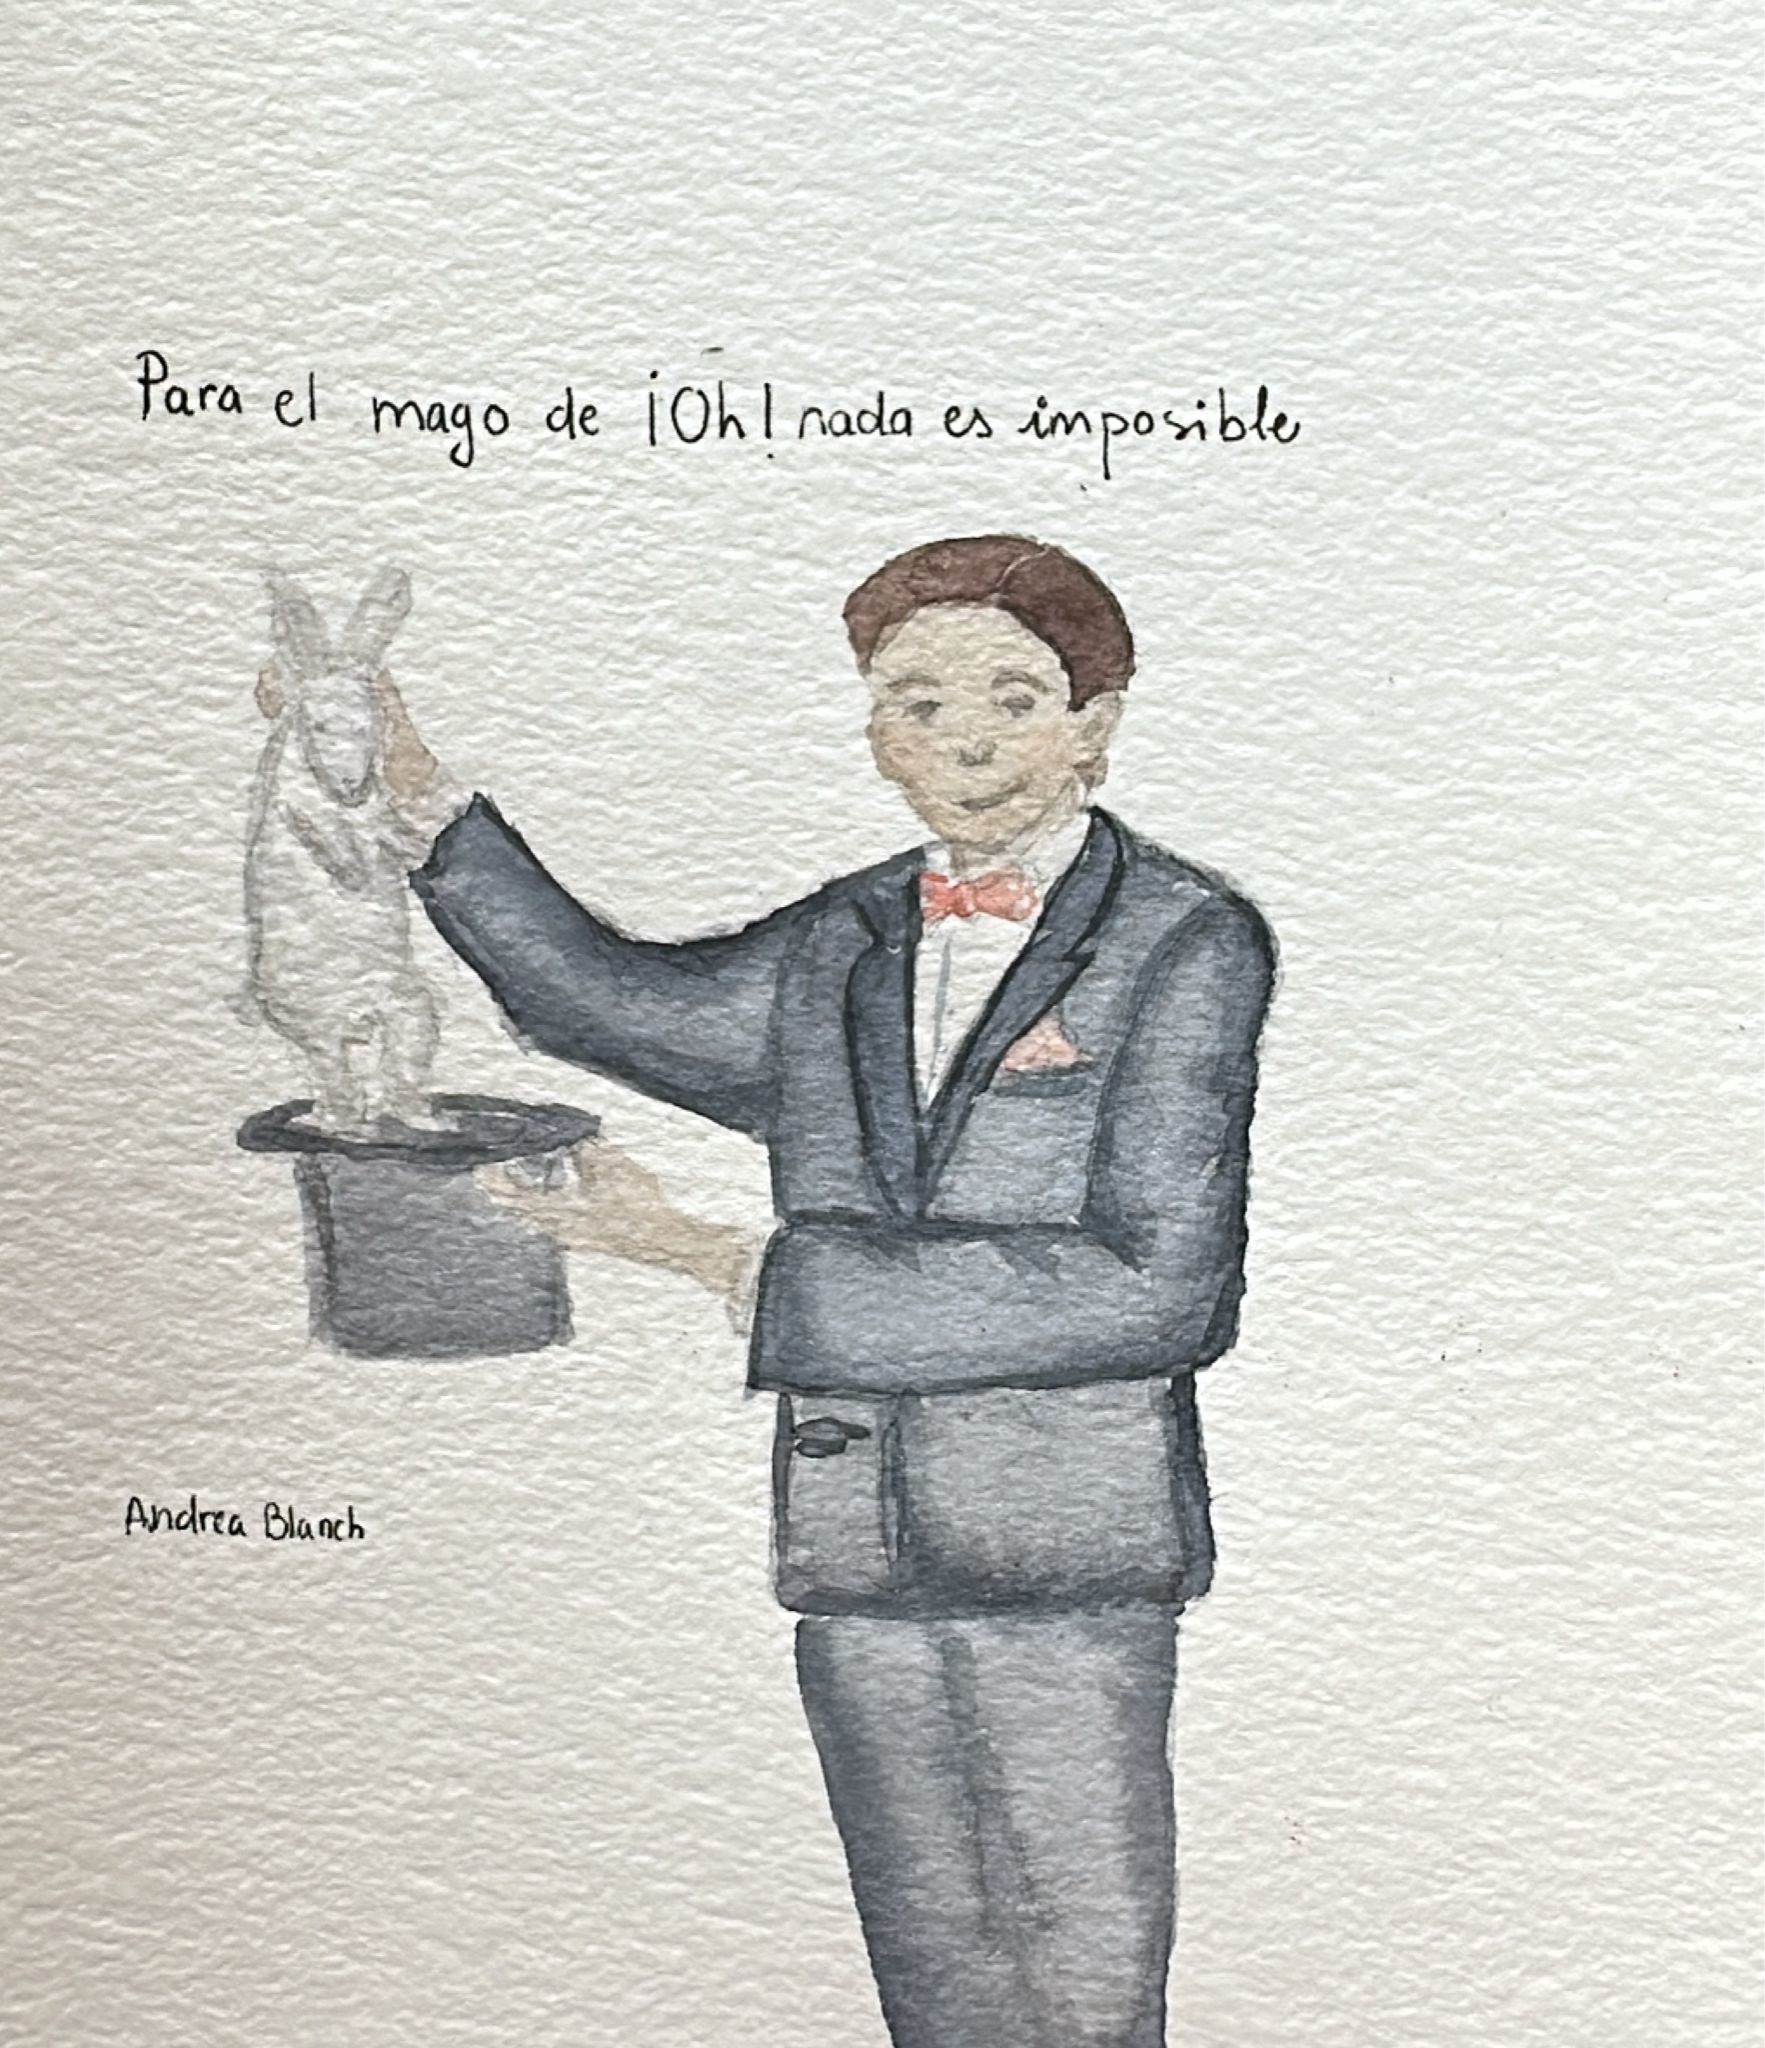 Para el mago de ¡Oh! nada es imposible
Andrea Blanch